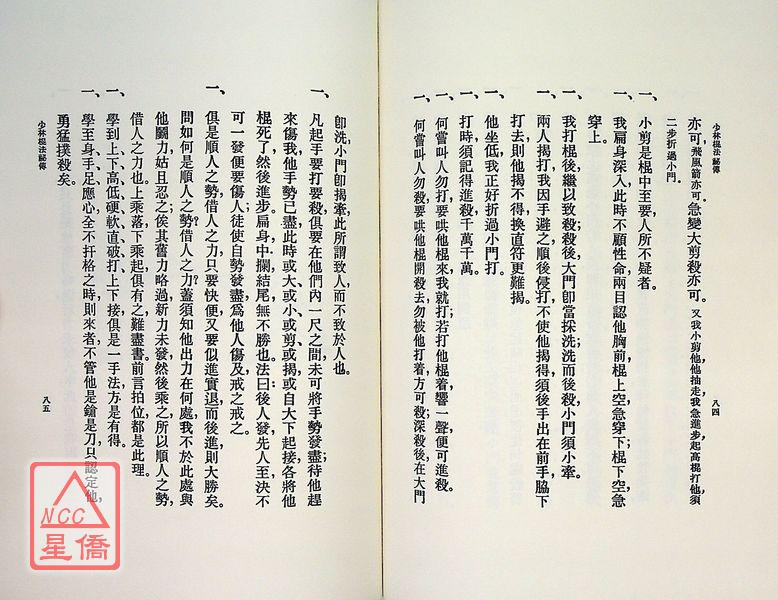 少林棍法秘傳
八四
亦可，飛風箭亦可。急變大剪殺亦可。又我小剪他，他抽走，我急進步起高棍打他，須
二步折過小門。
一、小剪是棍中至要，人所不疑者。
一、我扁身深入，此時不顧性命，兩目認他胸前，棍上空急穿下；棍下空急
穿上。
一、我打棍後，繼以致殺，殺後大門卽當採洗，洗而後殺，小門須小牽。
一、兩人揭打，我因手避之，順後侵打，不使他揭得，須後手出在前手脇下
打去，則他揭不得，換直符更難揭。
一、他坐低，我正好折過小門打。
一、打時須記得進殺，千萬千萬。
一、何嘗叫人勿打，要哄他棍來，我就打；若打他棍着響一聲，便可進殺。
一、何嘗叫人勿殺，要哄他棍開殺去，勿被他打着方可殺；深殺後，在大門
卽洗，小門卽揭牽，此所謂致人而不致於人也。
一、凡起手要打要殺，俱要在他們內一尺之間，未可將手勢發盡；待他趕
來傷我，他手勢已盡，此時或大、或小、或剪、或揭，或自大下起接，各將他
棍死了，然後進步。扁身中攔結尾，無不勝也。法曰：後人發，先人至，決不
可一發便要傷人，徒使自勢發盡，爲他人傷，及戒之戒之。
一、俱是順人之勢，借人之力，只要快便，又要似進實退，而後進則大勝矣。
問如何是順人之勢，借人之力？蓋須知他出力在何處，我不於此處與
他鬭力，姑且忍之；俟其舊力略過，新力未發，然後乘之，所以順人之勢，
借人之力也。上乘落，下乘起，俱有之，難盡書。前言拍位都是此理。
一、學到上下、高低、硬軟、直破打、上下接，俱是一手法，方是有得。
一、學至身手足應心，全不扞格之時，則來者不管他是鎗是刀，只認定他，
勇猛撲殺矣。
少林棍法秘傳
八五
NCC
星僑